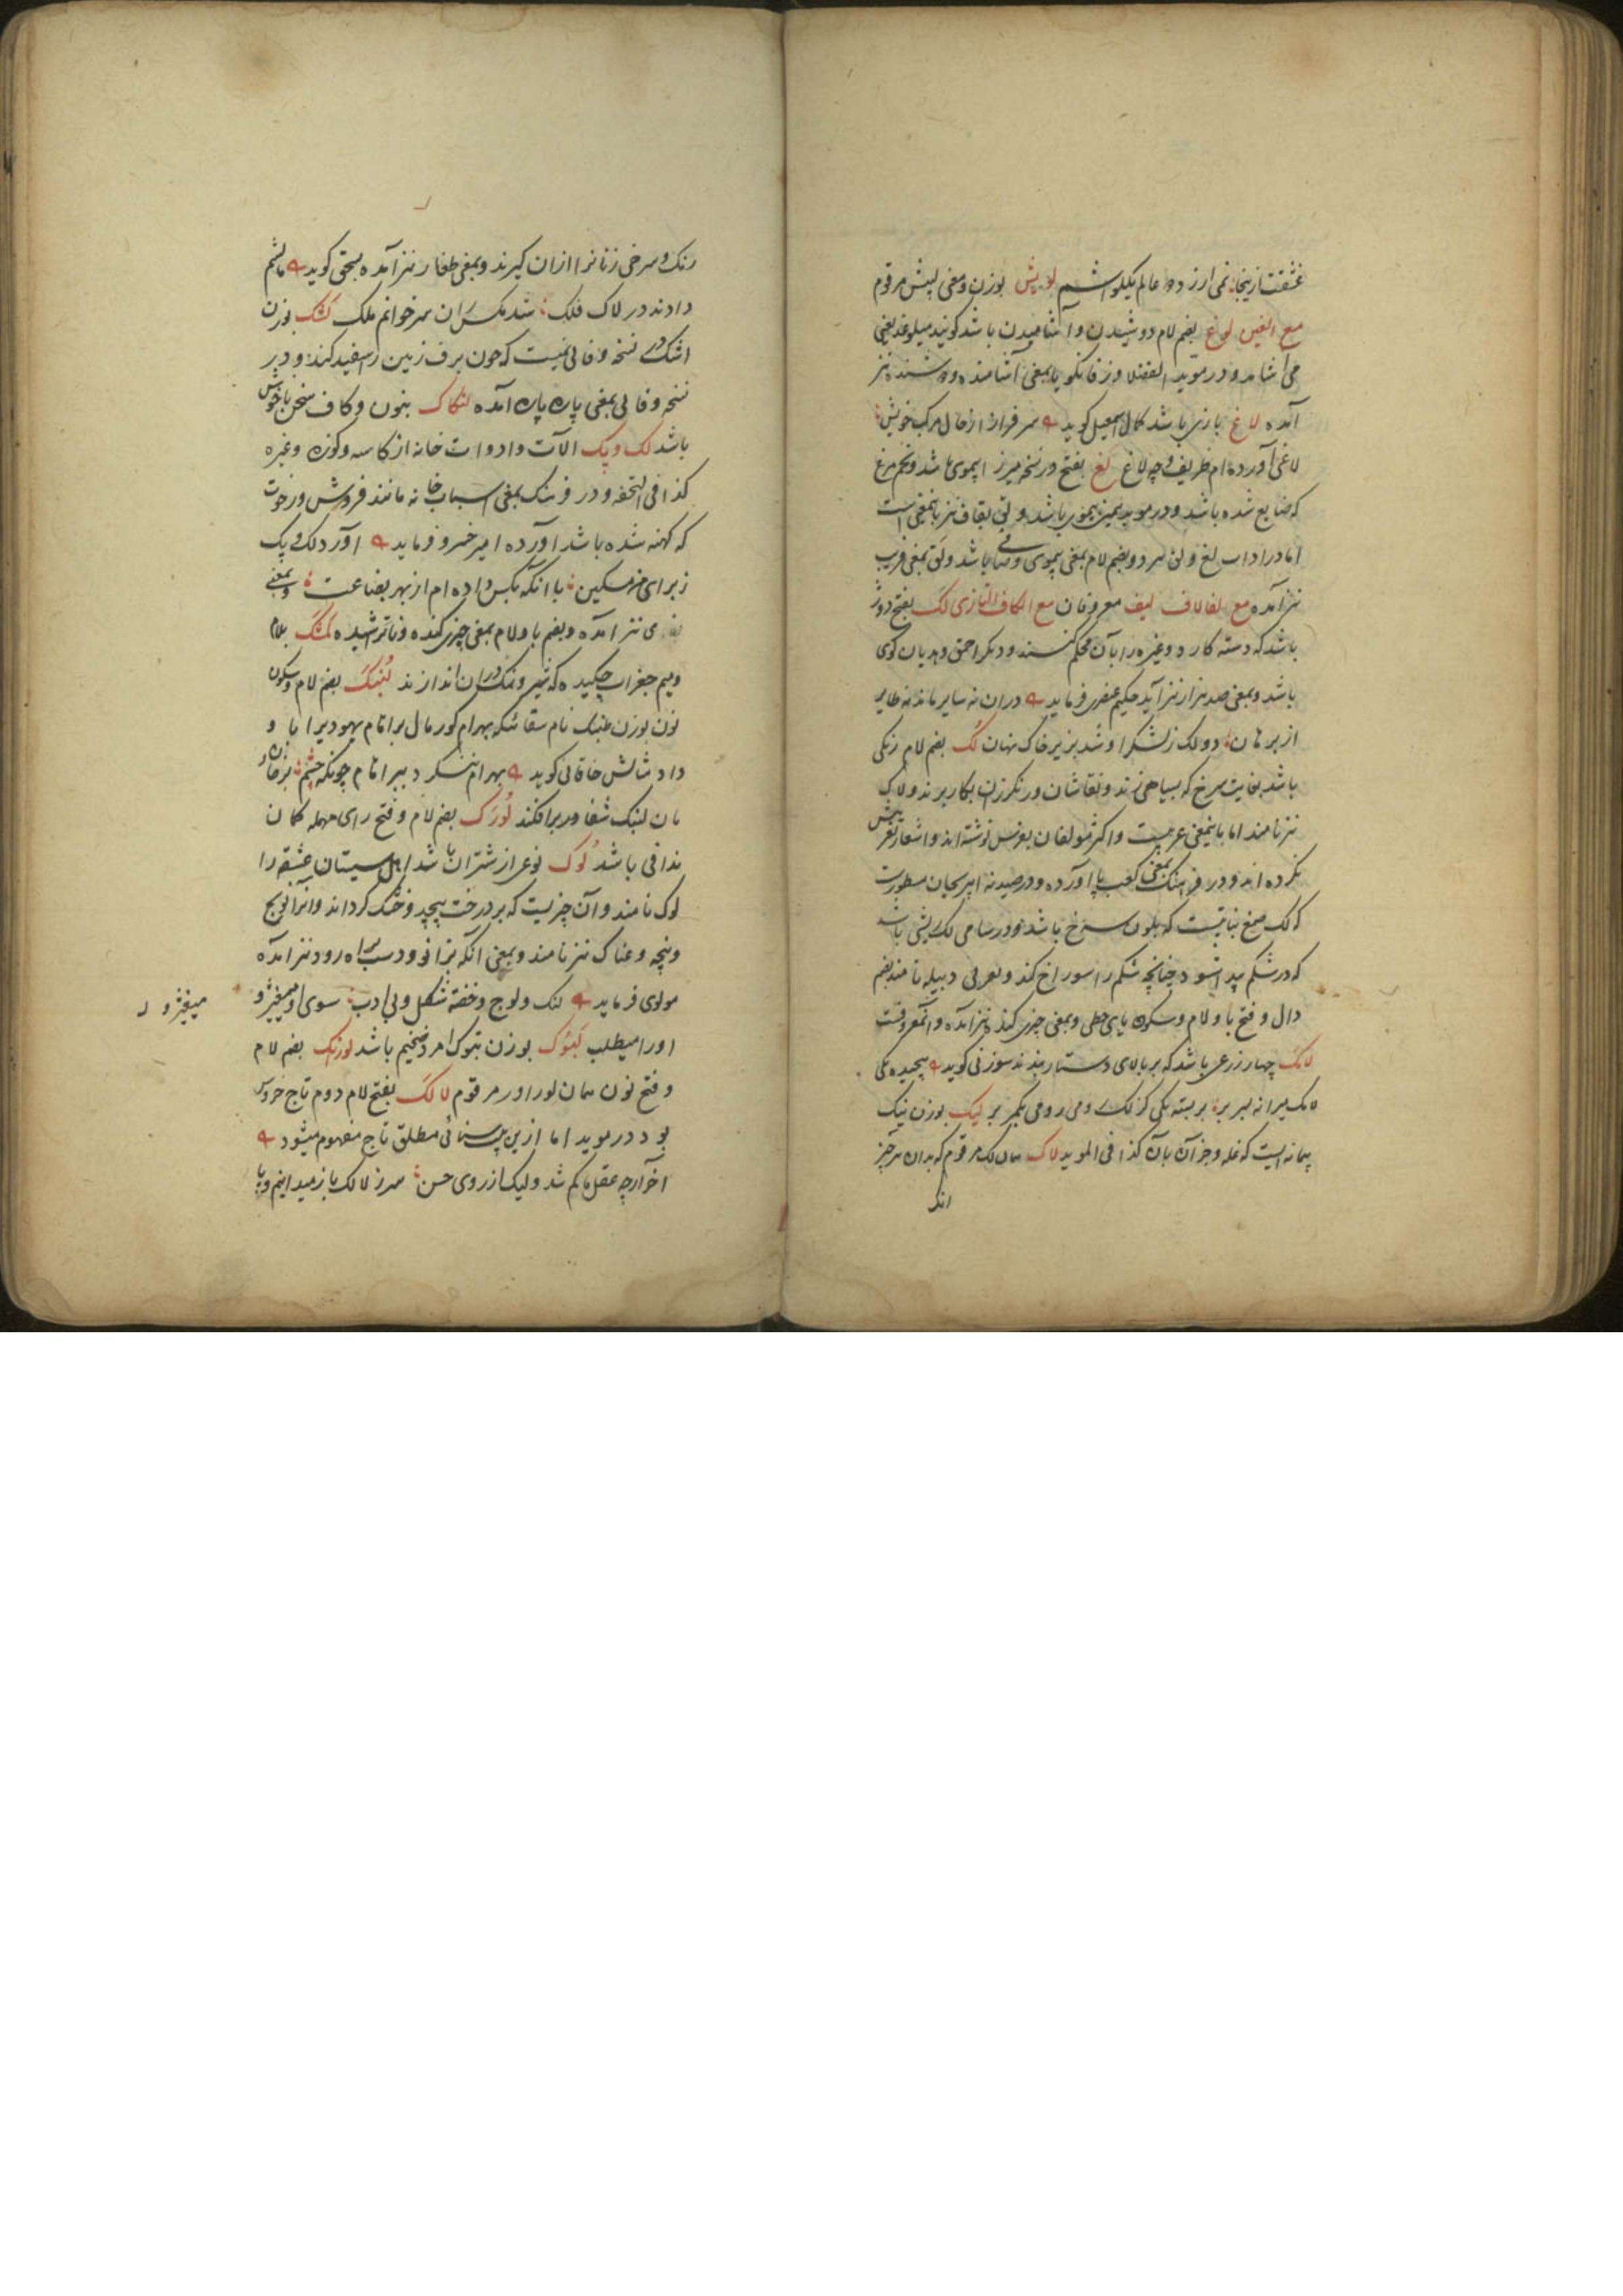 نمی ارزد دو عالم یکلواشیم لویش بوزن و معنی لپیش مرقوم
مع الغین لوغ بضم لام دوشیدن و آشامیدن باشد گویند میلوغد یعنی
می آشامد و در موید الفضلا و زفانگویا بمعنی آشامنده و دوشنده نیز
آمده لاغ بازی باشد کمال اسمعیل گوید سرفراز از خال مرکب خویش
لاغی آورده ام ظریف و چه لاغ لغ بفتح در نسخه میرزا بیموی باشد و تخم مرغ
که ضایع شده باشد و در موید همین بیموی باشد و لق بقاف نیز باینمعنی است
اما در اداب لغ و لق هر دو بضم لام بمعنی بیموی و صافی باشد و لق بمعنی فریب
نیز آمده مع الفا لاف لیف معروفان مع الکاف التازی لک بفتح دوژ
باشد که دسته کارد و غیره را بآن محکم کنند و دیگر احمق و هدیان گوی
باشد و بمعنی صد هزار نیز آید حکیم عنصری فرماید دران نه سایر ماند نه طایر
از بر مان دو لک ز لشکر او شد بزیر خاک نهان لک بضم لام رنگی
باشد بغایت سرخ که بسیاهی زند و نقاشان و رنگرزان بکار برند و لاک
نیز نامند اما باینمعنی عربیست و اکثر مولفان بفرس نوشته اند و اشعار بتعریبش
نکرده اند و در فرهنگ بمعنی کعب پا آورده و در صیدنه ابی ریحان مسطورست
که لک صمغ نباتیست که بلون سرخ باشد و در سامی لک ریشی باشد
که در شکم پیدا شود چنانچه شکم را سوراخ کند و بعربی دبیله نامند بضم
دال و فتح با و لام و سکون یای حطی و بمعنی چیزی کنده نیز آمده و آن معروفست
لامک چهار زرعی باشد که بر بالای دستار بندند سوزنی گوید پیچیده یکی
لامک میرانه بسر بر بر بسته یکی گزلک رومی بکمر بر لیک بوزن نیک
پیمانه ایست که غله و جز آن بآن کذا فی الموید لاک همان لک مرقوم که بدان هر چیز
رنگ و سرخی زنانرا ازان گیرند و بمعنی طغار نیز آمده بسحق گوید ماشم
دادند در لاک فلک شد مکس ران سر خوانم ملک لشک بوزن
اشک در نسخه وفائی نیست که چون برف زمین را سفید کند و در
نسخه وفائی بمعنی پاره پاره آمده لنکاک بنون و کاف سخن ناخوش
باشد لک و پک الات و ادوات خانه از کاسه و کوزه و غیره
کذا فی التحفه و در فرهنگ بمعنی اسباب خانه مانند فروش و رخوت
که کهنه شده باشد آورده امیر خسرو فرماید آورد لک و پک
ز برای من مسکین با آنکه بکس داده ام از بهر بضاعت و بمعنی
نیز آمده و بضم با و لام بمعنی چیزی کنده و ناتراشیده لمشک بلام
و میم جغرات چکیده که شیر و نمک دران اندازند لنبک بضم لام و سکون
نون بوزن طنبک نام سقائیکه بهرام گور مال براهام یهودیرا با و
داد شاعر خاقانی گوید بهرام ننگرد ببراهام چونکه چشم بر خان و
مان لنبک سقا دربرافکند لورک بضم لام و فتح رای مهمله کمان
ندافی باشد لوک نوعی از شتران باشد اهل سیستان عشقه را
لوک نامند و آن چیزیست که بر درخت پیچد و خشک گرداند و آنرا نویج
و پیچه و عناک نیز نامند و بمعنی آنکه بزانو و دست براه رود نیز آمده
مولوی فرماید لنگ و لوک و خفته شکل و بی ادب سوی او میغیژ و
اورا میطلب لتوک بوزن بتوک امرد ضخیم باشد لورنک بضم لام
و فتح نون همان لوراور مرقوم لالک بفتح لام دوم تاج خروس
بود در موید اما ازین بیت سنائی مطلق تاج مفهوم میشود
آخر ارچه عقل ما کم شد ولیک از روی حسن سرز لالک باز میدانیم و پا
میغیژ و